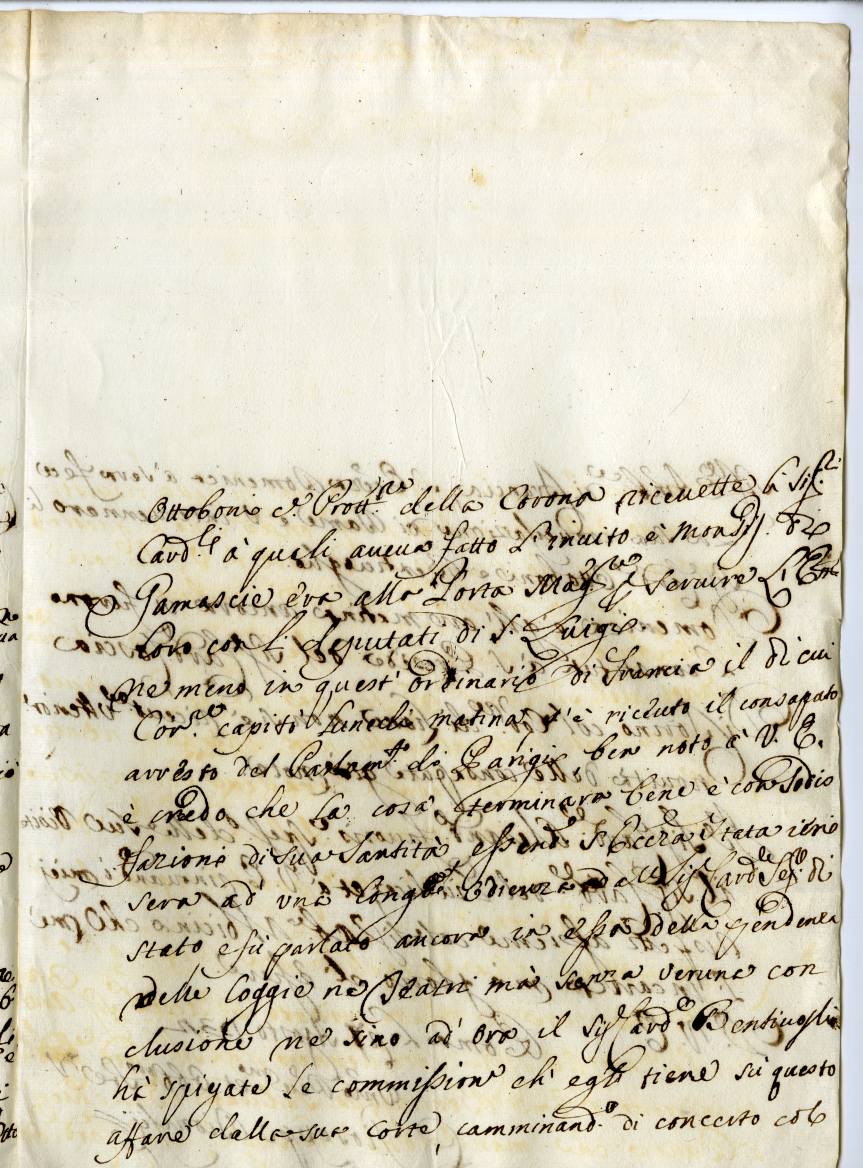 Ottoboni e Prott.re della Corona riceuette li Sig.ri
Card.li à quali aueua fatto l'inuito è Mons.r di
Gamascie era alla Porta Mag.re p seruire l'Em.ze
Loro con li deputati di S. Luigi
ne meno in quest'ordinario di francia il di cui
Cor.re capitò lunedi matina s'è riceuto il consaputo
arresto del Parlam.to di Parigi ben noto à V. E.
è credo che la cosa terminarà bene è con sodis
fazione di sua Santità essend.o S. Ecc.za stata ieri
sera ad una long.a Udienza del Sig.r Card.le Seg.o di
stato e fù parlato ancora in essa della pendenza
delle loggie ne Teatri mà senza veruna con
clusione ne sino ad'ora il Sig.r Card.e Bentivoglio
hà spigate le commissioni ch'egli tiene sù questo
affare dalla sua Corte, camminand.o di concerto col